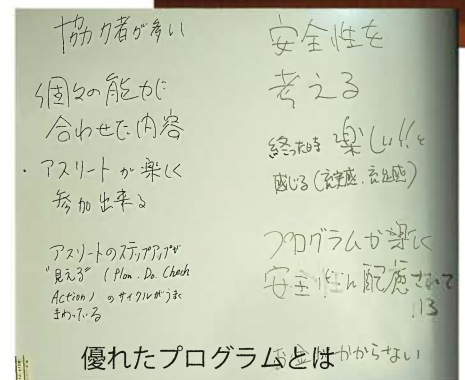 協力者が多い
個々の能力に
合わせた内容
・アスリートが楽しく
参加出来る
アスリートのステップアップが
"見える" (Plan. Do. Check
Action) のサイクルがうまく
まわっている
安全性を
考える
終った時 楽しい!!と
感じる (充実感、充足感)
プログラムが楽しく
安全性に配慮されて
いる
かからない
優れたプログラムとは